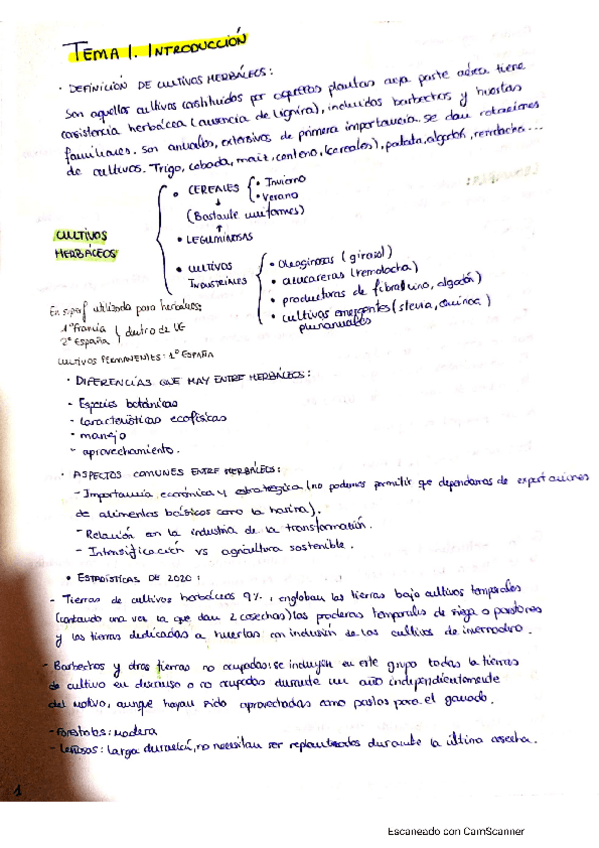 TEMA 1. INTRODUCCIÓN
· DEFINICIÓN DE CULTIVOS HERBÁCEOS:
Son aquellos cultivos constituidos por aquellas plantas cuya parte aérea tiene
consistencia herbácea (ausencia de lignina), incluidos barbechos y huertas
familiares. Son anuales, extensivos de primera importancia. Se dan rotaciones
de cultivos. Trigo, cebada, maíz, centeno, (cereales), patata, algodón, remolacha...
CULTIVOS HERBÁCEOS
· CEREALES
· Invierno
· Verano
(Bastante uniformes)
· LEGUMINOSAS
· CULTIVOS INDUSTRIALES
· Oleaginosas (girasol)
· azucareras (remolacha)
· productoras de fibra (lino, algodón)
· cultivos emergentes (stevia, quinoa)
plurianuales
En superf utilizada para herbáceos:
1º Francia
2º España
dentro de UE
CULTIVOS PERMANENTES: 1º ESPAÑA
· DIFERENCIAS QUE HAY ENTRE HERBÁCEOS:
- Especies botánicas
- características ecofísicas
- manejo
- aprovechamiento.
· ASPECTOS COMUNES ENTRE HERBÁCEOS:
- Importancia económica y estratégica (no podemos permitir que dependamos de exportaciones
de alimentos básicos como la harina).
- Relación en la industria de la transformación.
- Intensificación vs agricultura sostenible.
· ESTADÍSTICAS DE 2020:
- Tierras de cultivos herbáceos 9%: engloban las tierras bajo cultivos temporales
(contando una vez la que dan 2 cosechas) las praderas temporales de siega o pastoreo
y las tierras dedicadas a huertas con inclusión de los cultivos de invernadero.
- Barbechos y otras tierras no ocupadas: se incluyen en este grupo todas la tierras
de cultivo en descanso o no ocupadas durante un año independientemente
del motivo, aunque hayan sido aprovechadas como pastos para el ganado.
- Forestales: Madera
- Leñosas: larga duración, no necesitan ser replantados durante la última cosecha.
1
Escaneado con CamScanner